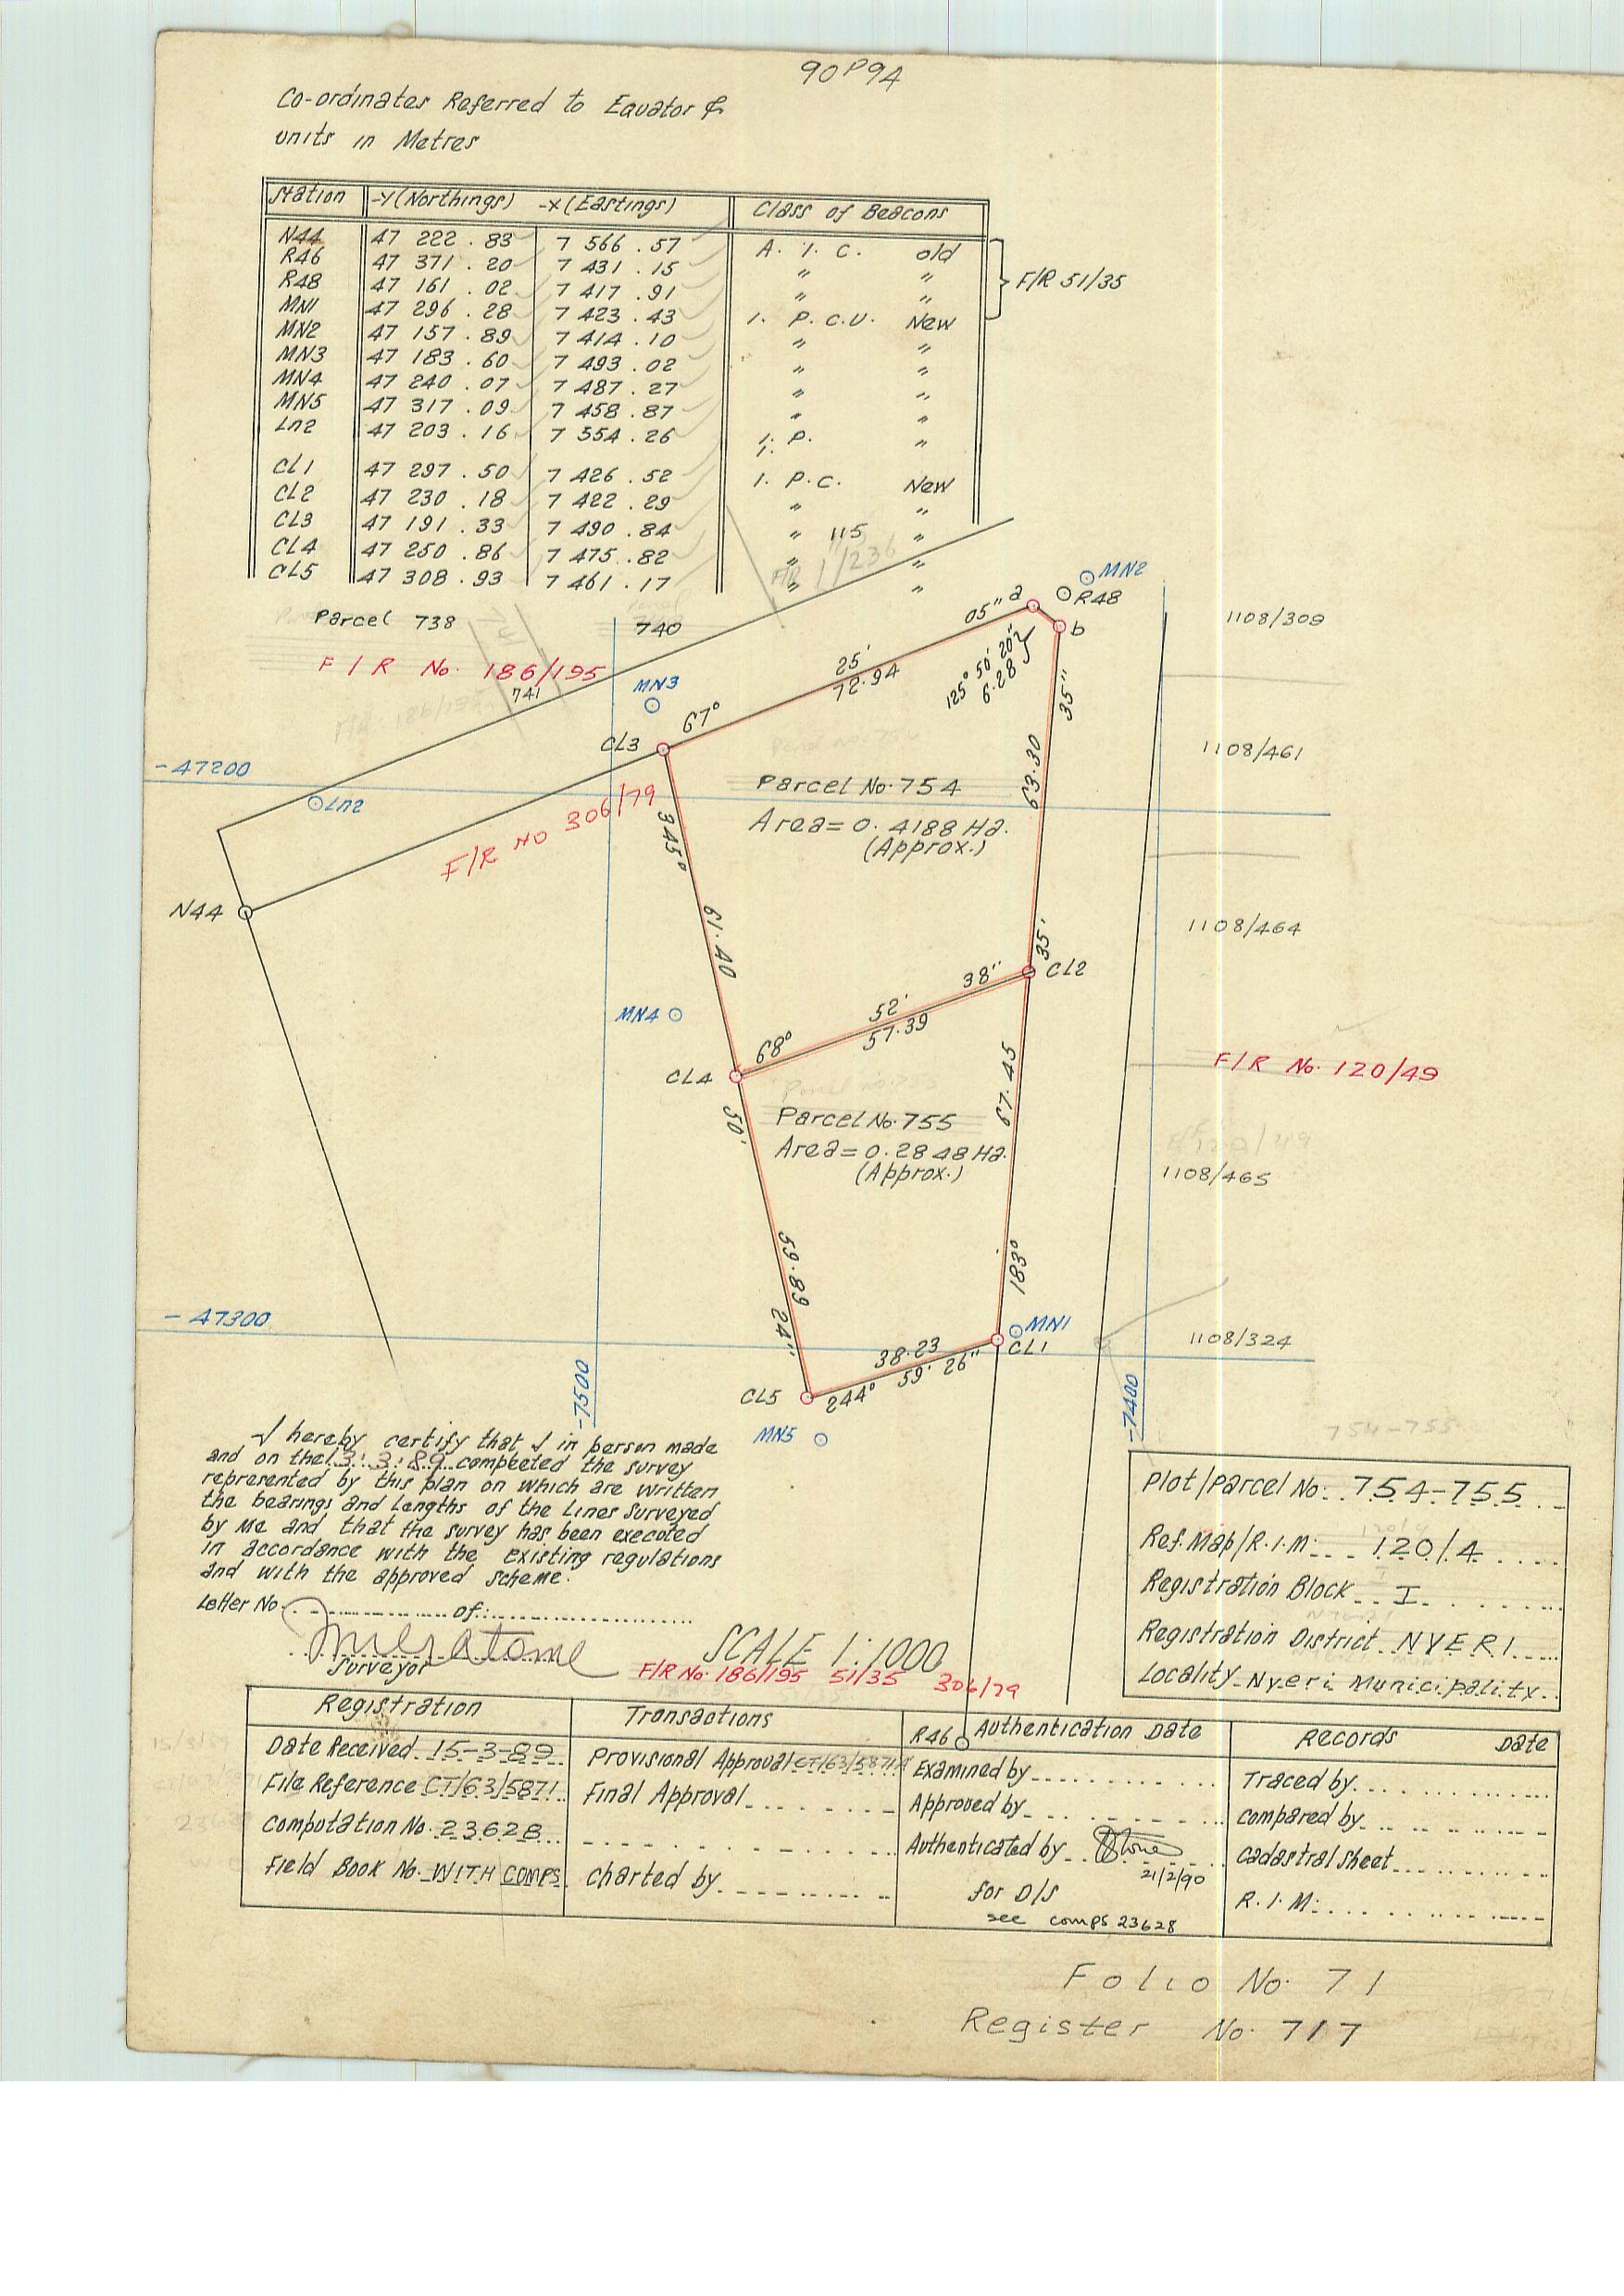 90P94
Co-ordinates Referred to Equator &
units in Metres
Station -Y(Northings) -X(Eastings) Class of Beacons
N44 47 222 . 83 7 566 . 57 A. I. C. old
R46 47 371 . 20 7 431 . 15 " "
R48 47 161 . 02 7 417 . 91 " "
F/R 51/35
MN1 47 296 . 28 7 423 . 43 I. P. C. U. New
MN2 47 157 . 89 7 414 . 10 " "
MN3 47 183 . 60 7 493 . 02 " "
MN4 47 240 . 07 7 487 . 27 " "
MN5 47 317 . 09 7 458 . 87 " "
Ln2 47 203 . 16 7 554 . 26 I. P. "
CL1 47 297 . 50 7 426 . 52 I. P. C. New
CL2 47 230 . 18 7 422 . 29 " "
CL3 47 191 . 33 7 490 . 84 " 115 "
CL4 47 250 . 86 7 475 . 82 " "
CL5 47 308 . 93 7 461 . 17 " "
F/R 1/236
MN2
R48
a
b
05"
Parcel 738
740
1108/309
F/R No. 186/195
741
25'
72.94
125° 50' 20"
6.28
35"
MN3
67°
CL3
1108/461
-47200
Ln2
63.30
Parcel No. 754
Area = 0.4188 Ha.
(Approx.)
F/R NO 306/79
345°
N44
61.40
1108/464
35'
CL2
38"
52'
57.39
MN4
68°
CL4
F/R No. 120/49
67.45
50'
Parcel No. 755
Area = 0.2848 Ha.
(Approx.)
1108/465
183°
59.89
24"
-47300
MN1
CL1
1108/324
38.23
59' 26"
244°
CL5
-7500
-7400
MN5
754-755
I hereby certify that I in person made
and on the 13.3.89 completed the survey
represented by this plan on which are written
the bearings and Lengths of the Lines Surveyed
by Me and that the survey has been executed
in accordance with the existing regulations
and with the approved scheme.
Letter No. of:
Surveyor
SCALE 1:1000
F/R No. 186/195 51/35 306/79
Plot/Parcel No: 754-755
Ref. Map/R.I.M: 120/4
Registration Block I
Registration District NYERI
Locality Nyeri Municipality
Registration
Date Received 15-3-89
File Reference CT/63/5871
Computation No. 23628
Field Book No. WITH COMPS
Transactions
Provisional Approval CT/63/5871/
Final Approval
Charted by
R46
Authentication Date
Examined by
Approved by
Authenticated by
21/2/90
for D/S
see comps 23628
Records Date
Traced by
Compared by
Cadastral Sheet
R.I.M:
Folio No. 71
Register No. 717